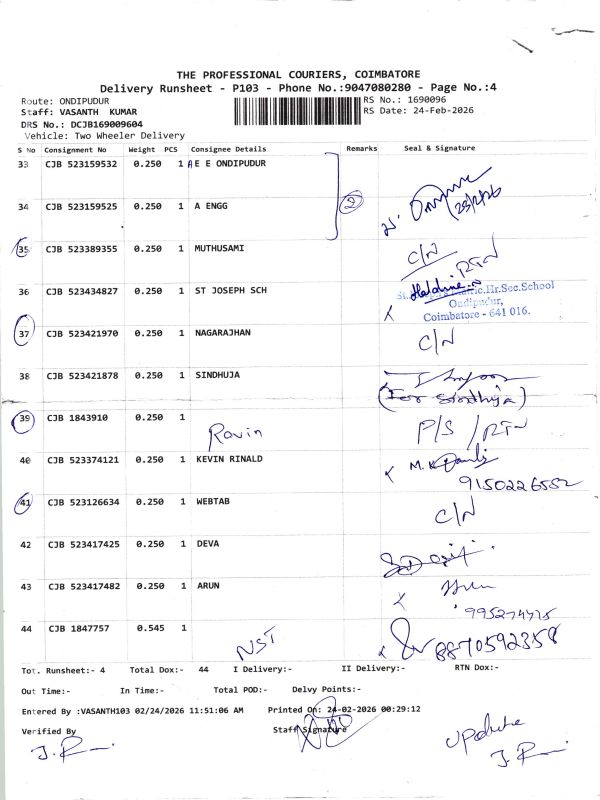 THE PROFESSIONAL COURIERS, COIMBATORE
Delivery Runsheet - P103 - Phone No.:9047080280 - Page No.:4
Route: ONDIPUDUR
RS No.: 1690096
Staff: VASANTH KUMAR
RS Date: 24-Feb-2026
DRS No.: DCJB169009604
Vehicle: Two Wheeler Delivery
S No Consignment No Weight PCS Consignee Details Remarks Seal & Signature
33 CJB 523159532 0.250 1 A E E ONDIPUDUR
34 CJB 523159525 0.250 1 A ENGG 2
35 CJB 523389355 0.250 1 MUTHUSAMI C/N RTN
36 CJB 523434827 0.250 1 ST JOSEPH SCH
Hr.Sec.School
Ondipudur,
Coimbatore - 641 016.
37 CJB 523421970 0.250 1 NAGARAJHAN C/N
38 CJB 523421878 0.250 1 SINDHUJA
(For Sindhuja)
39 CJB 1843910 0.250 1 P/S / RTN
40 CJB 523374121 0.250 1 KEVIN RINALD
9150226552
41 CJB 523126634 0.250 1 WEBTAB C/N
42 CJB 523417425 0.250 1 DEVA
43 CJB 523417482 0.250 1 ARUN
44 CJB 1847757 0.545 1 NST 8870592358
Tot. Runsheet:- 4 Total Dox:- 44 I Delivery:- II Delivery:- RTN Dox:-
Out Time:- In Time:- Total POD:- Delvy Points:-
Entered By :VASANTH103 02/24/2026 11:51:06 AM Printed On: 24-02-2026 00:29:12
Verified By Staff Signature